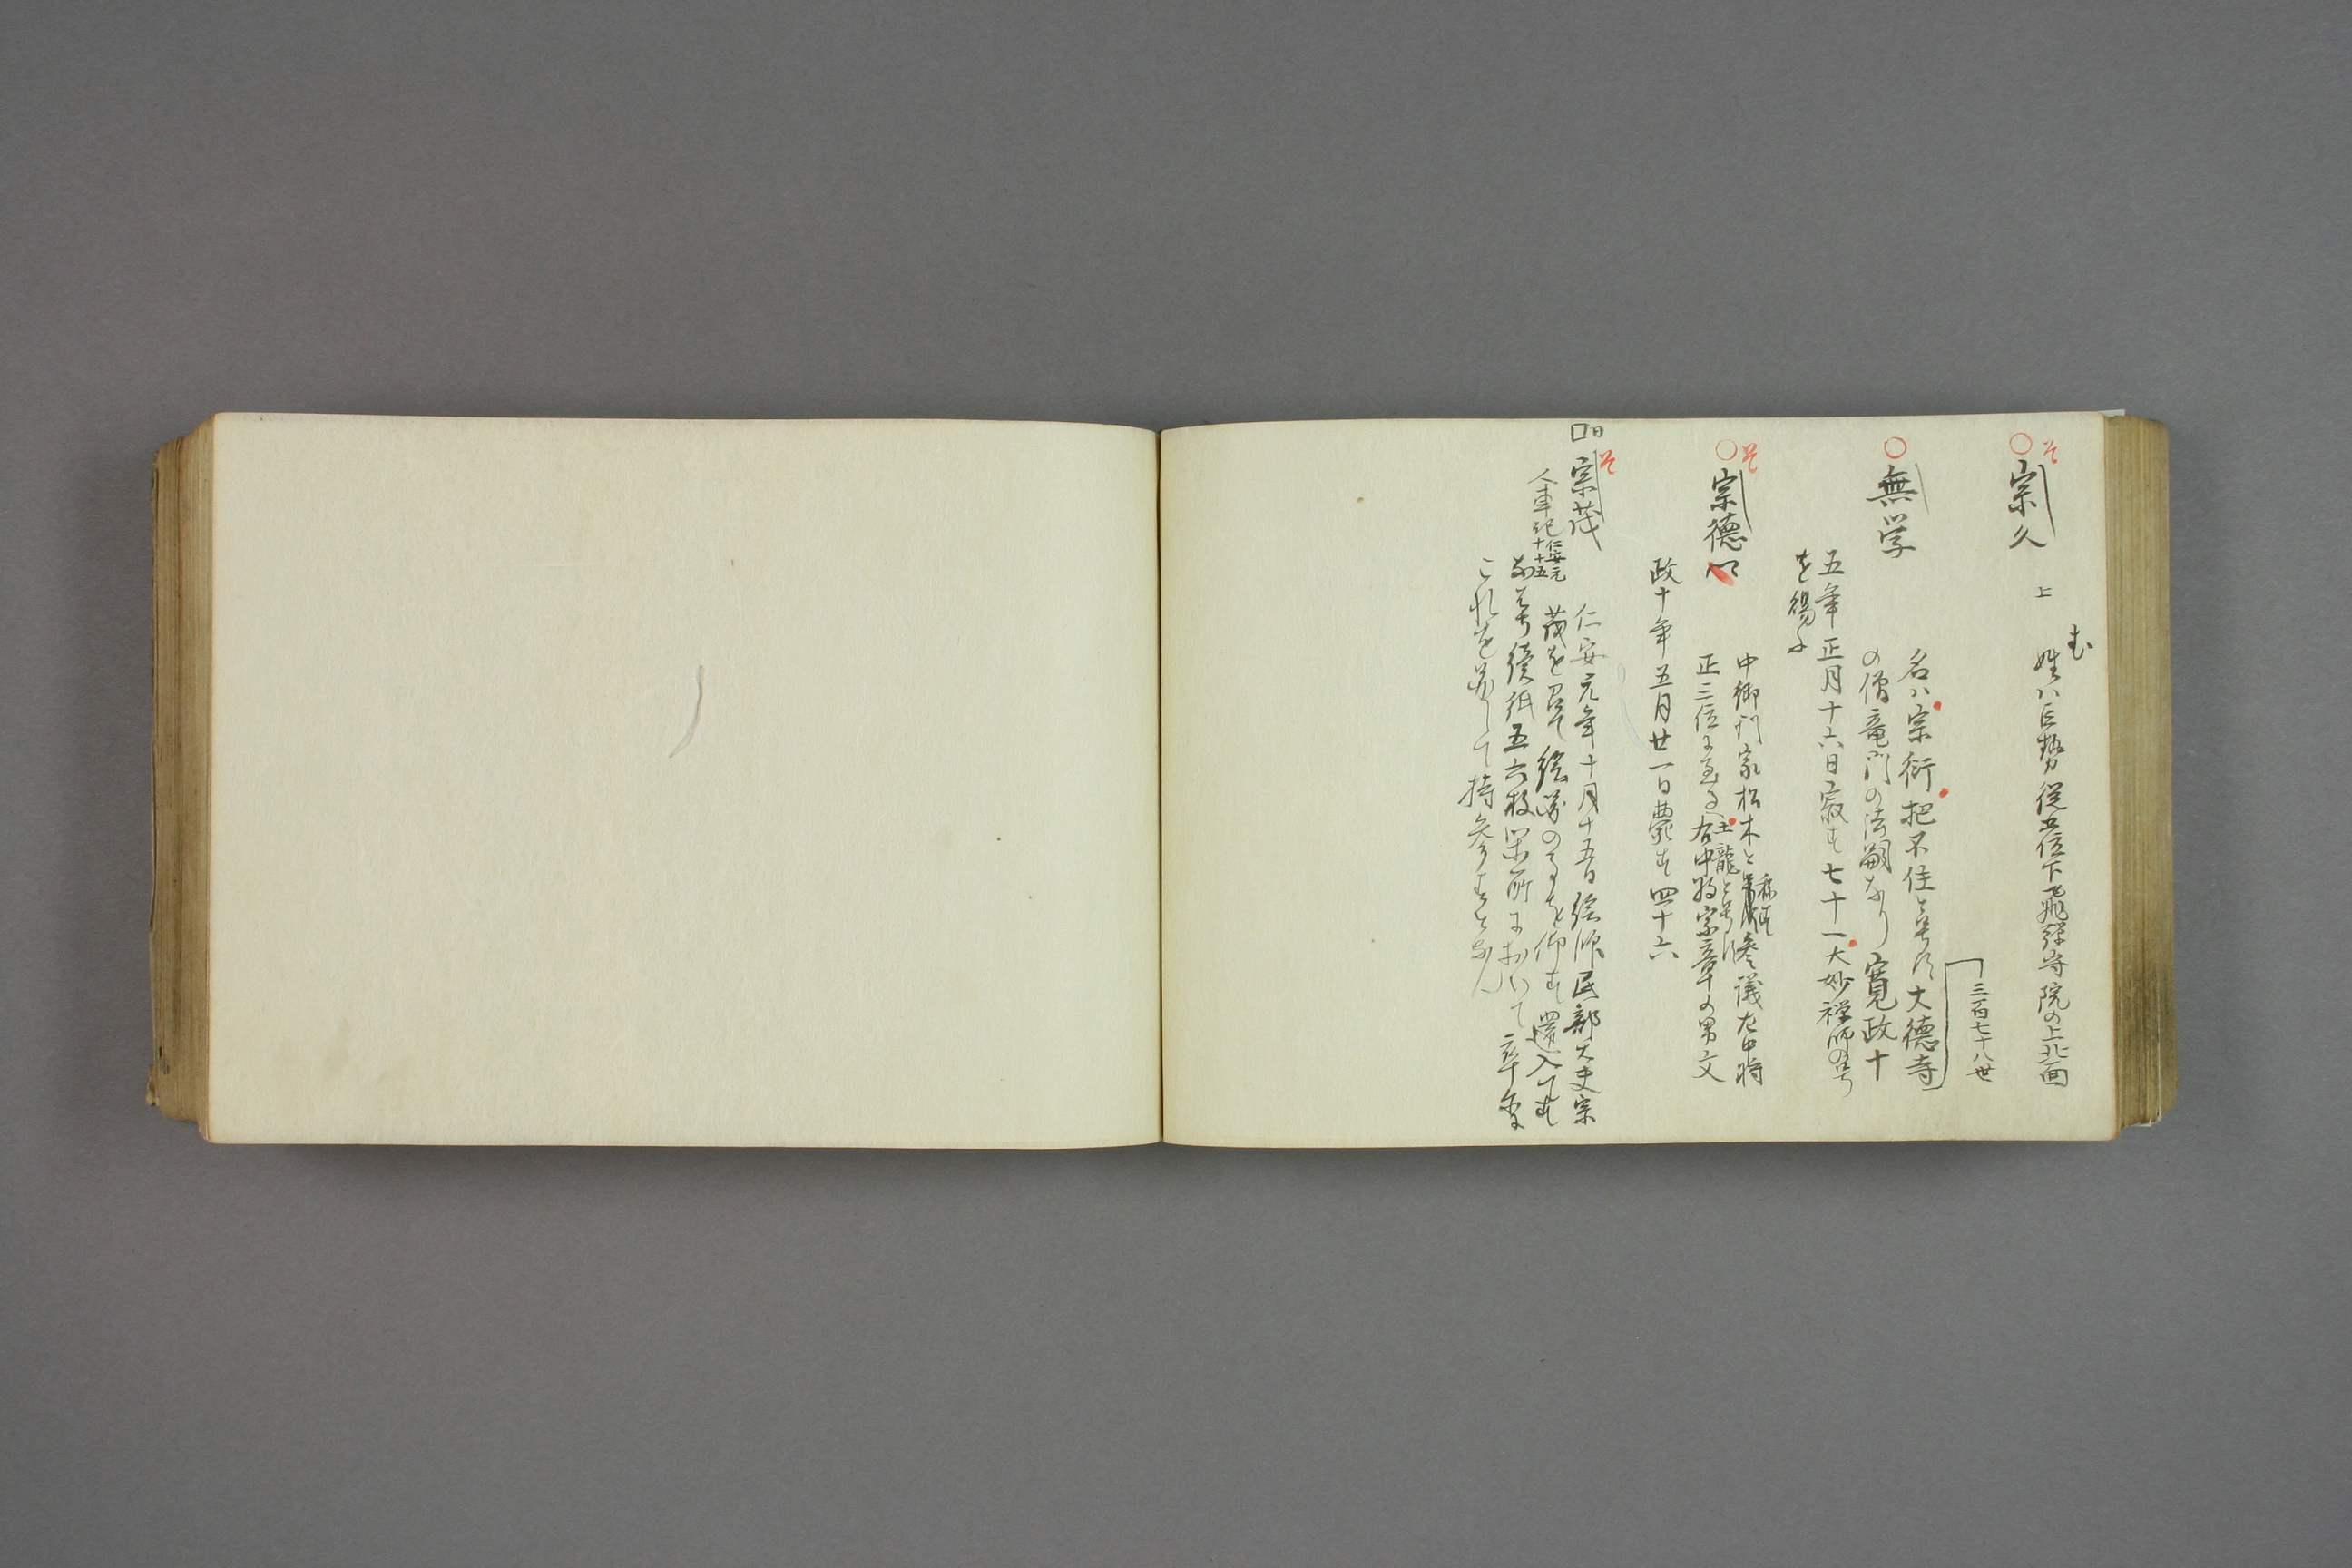 む
そ
○宗久
上
姓ハ巨勢従五位下飛弾守院の上北面
○無学
三百七十八世
名ハ宗衍把不住と号す大徳寺
の僧竜門の法嗣なり寛政十
五年正月十六日寂す七十一大妙禅師の号
を得
そ
○宗徳
中御門家松木と称す参議左中将
正三位に至る
土龍と号す
右中将宗章の男文
政十年五月廿一日薨す四十六
口日
そ
宗茂
人車記仁安元十十五
仁安元年十月十五日絵師民部大夫宗
茂を召て絵様の事を仰す還入て
続紙五六枚
これを
て持参